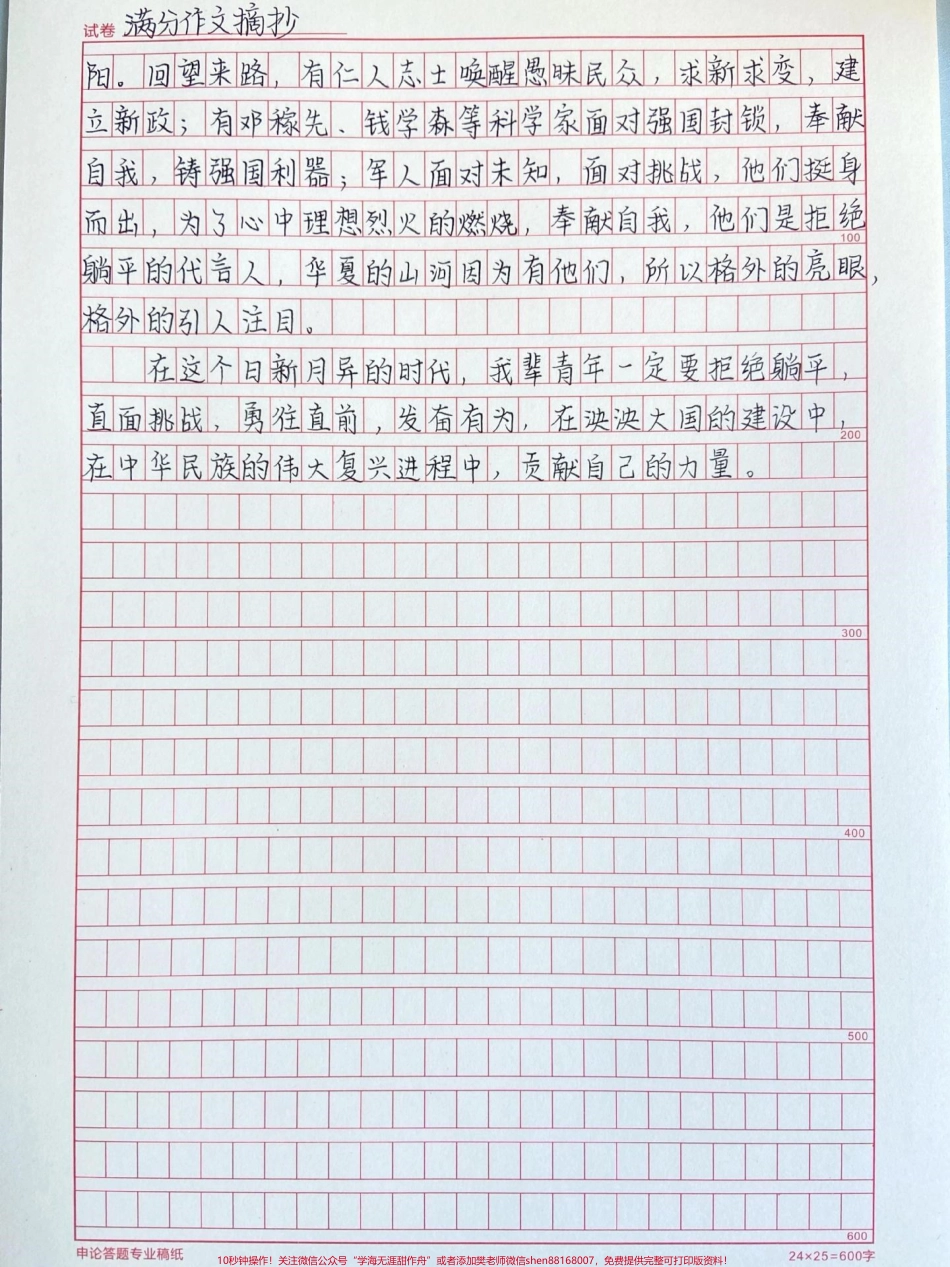 试卷 满分作文摘抄
阳。回望来路，有仁人志士唤醒愚昧民众，求新求变，建
立新政；有邓稼先、钱学森等科学家面对强国封锁，奉献
自我，铸强国利器；军人面对未知，面对挑战，他们挺身
而出，为了心中理想烈火的燃烧，奉献自我，他们是拒绝
100
躺平的代言人，华夏的山河因为有他们，所以格外的亮眼，
格外的引人注目。
在这个日新月异的时代，我辈青年一定要拒绝躺平，
直面挑战，勇往直前，发奋有为，在泱泱大国的建设中，
200
在中华民族的伟大复兴进程中，贡献自己的力量。
300
400
500
600
申论答题专业稿纸 24×25=600字
10秒钟操作！关注微信公众号“学海无涯甜作舟”或者添加樊老师微信shen88168007，免费提供完整可打印版资料！